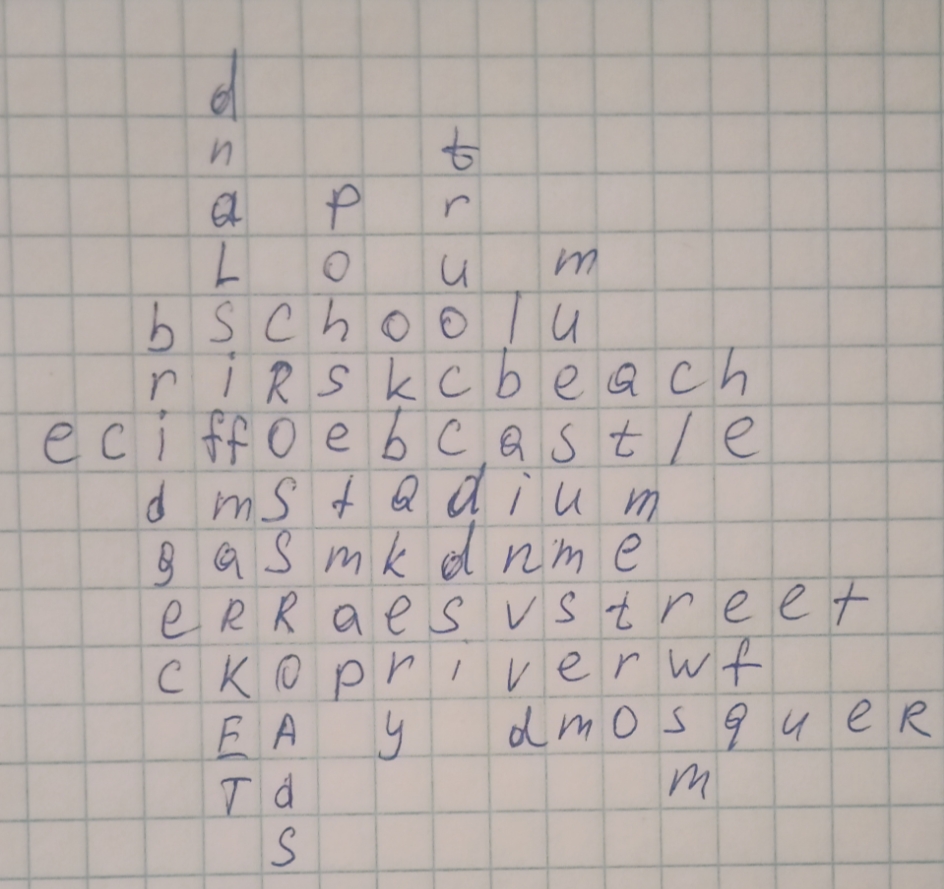 d
n t
a p r
L o u m
b s c h o o l u
r i R s k c b e a c h
e c i ff o e b c a s t l e
d m s t a d i u m
g a s m k d n m e
e R R a e s v s t r e e t
c K O p r i v e r w f
E A y d m o s q u e R
T d m
S